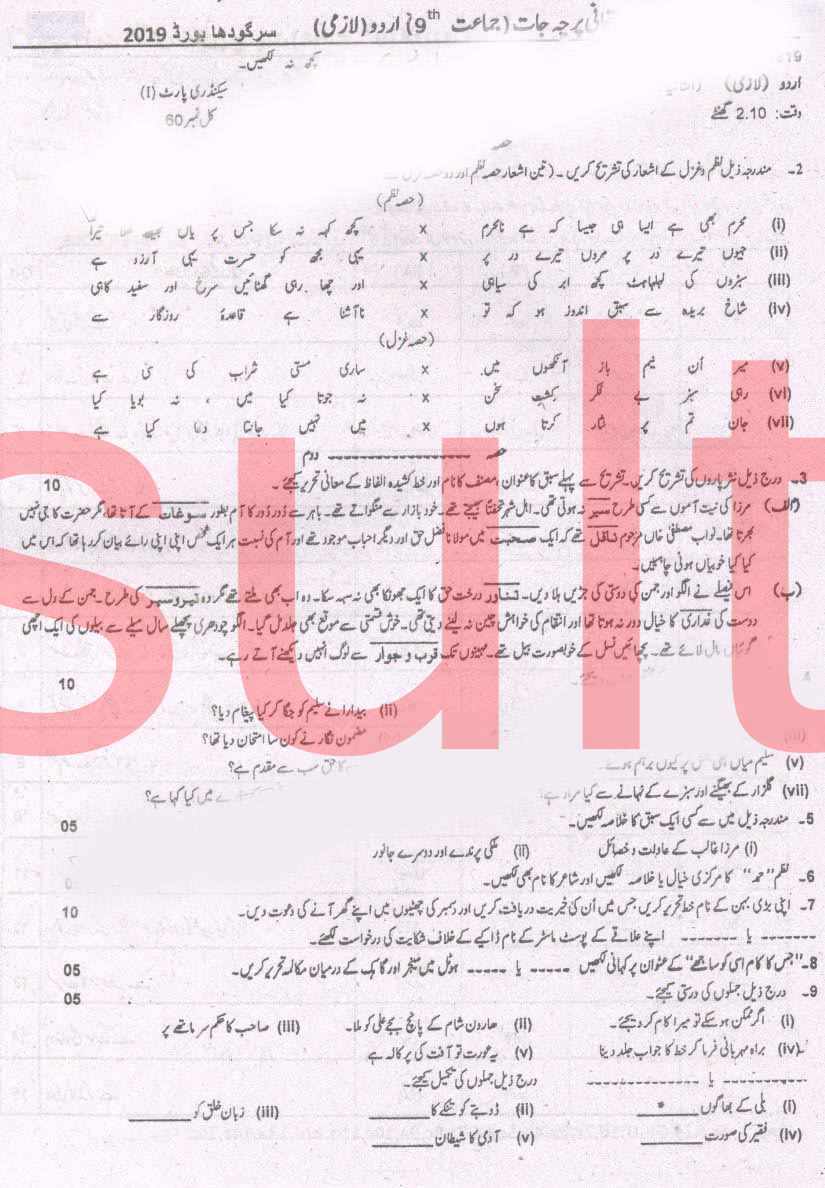 پرچہ جات (جماعت 9th) اردو (لازمی) سرگودھا بورڈ 2019
کچھ نہ لکھیں۔
اردو (لازمی)
سیکنڈری پارٹ (I)
وقت: 2.10 گھنٹے
کل نمبر 60
حصہ
2۔ مندرجہ ذیل نظم و غزل کے اشعار کی تشریح کریں۔ (تین اشعار حصہ نظم اور دو
(حصہ نظم)
(i) محرم بھی ہے ایسا ہی جیسا کہ ہے نامحرم x کچھ کہہ نہ سکا جس پر یاں بھید کھلا تیرا
(ii) جیوں تیرے در پر مروں تیرے در پر x یہی مجھ کو حسرت یہی آرزو ہے
(iii) سبزوں کی لہلہاہٹ کچھ ابر کی سیاہی x اور چھا رہی گھٹائیں سرخ اور سفید کاہی
(iv) شاخ بریدہ سے سبق اندوز ہو کہ تو x ناآشنا ہے قاعدۂ روزگار سے
(حصہ غزل)
(v) میر ان نیم باز آنکھوں میں x ساری مستی شراب کی سی ہے
(vi) رہی سبز بے فکر کشت سخن x نہ جوتا کیا میں ، نہ بویا کیا
(vii) جان تم پر نثار کرتا ہوں x میں نہیں جانتا دعا کیا ہے
حصہ ------------------ دوم
3۔ درج ذیل نثر پاروں کی تشریح کریں۔ تشریح سے پہلے سبق کا عنوان، مصنف کا نام اور خط کشیدہ الفاظ کے معانی تحریر کیجئے۔ 10
(الف) مرزا کی نیت آموں سے کسی طرح سیر نہ ہوتی تھی۔ اہل شہر تحفتاً بھیجتے تھے۔ خود بازار سے منگواتے تھے۔ باہر سے دُور دُور کا آم بطور سوغات کے آتا تھا، مگر حضرت کا جی نہیں
بھرتا تھا۔ نواب مصطفٰی خاں مرحوم ناقل تھے کہ ایک صحبت میں مولانا فضل حق اور دیگر احباب موجود تھے اور آم کی نسبت ہر ایک شخص اپنی اپنی رائے بیان کر رہا تھا کہ اس میں
کیا کیا خوبیاں ہونی چاہئیں۔
(ب) اس فیصلے نے الگو اور جمن کی دوستی کی جڑیں ہلا دیں۔ تناور درخت حق کا ایک جھونکا بھی نہ سہہ سکا۔ وہ اب بھی ملتے تھے مگر وہ تیر و سپر کی طرح۔ جمن کے دل سے
دوست کی غداری کا خیال دور نہ ہوتا تھا اور انتقام کی خواہش چین نہ لینے دیتی تھی۔ خوش قسمتی سے موقع بھی جلد مل گیا۔ الگو چودھری پچھلے سال میلے سے بیلوں کی ایک اچھی
گوئیاں مول لائے تھے۔ پچھائیں نسل کے خوبصورت بیل تھے۔ مہینوں تک قرب و جوار سے لوگ انہیں دیکھنے آتے رہے۔
10
(ii) بیدارا نے سلیم کو جگا کر کیا پیغام دیا؟
مضمون نگار نے کون سا امتحان دیا تھا؟
(v) سلیم میاں پر کیوں برہم ہوئے۔ کا حق سب سے مقدم ہے؟
(vii) گلزار کے بھیگنے اور سبزے کے نہانے سے کیا مراد ہے؟ میں کیا کہا ہے؟
5۔ مندرجہ ذیل میں سے کسی ایک سبق کا خلاصہ لکھیں۔ 05
(i) مرزا غالب کے عادات و خصائل (ii) ملکی پرندے اور دوسرے جانور
6۔ نظم "حمد" کا مرکزی خیال یا خلاصہ لکھیں اور شاعر کا نام بھی لکھیں۔
7۔ اپنی بڑی بہن کے نام خط تحریر کریں جس میں اُن کی خیریت دریافت کریں اور دسمبر کی چھٹیوں میں اپنے گھر آنے کی دعوت دیں۔ 10
------- یا ------- اپنے علاقے کے پوسٹ ماسٹر کے نام ڈاکیے کے خلاف شکایت کی درخواست لکھئے۔
8۔ "جس کا کام اسی کو ساجھے" کے عنوان پر کہانی لکھیں ----- یا ----- ہوٹل میں منیجر اور گاہک کے درمیان مکالمہ تحریر کریں۔ 05
9۔ درج ذیل جملوں کی درستی کیجئے۔ 05
(i) اگر ممکن ہو سکے تو میرا کام کر دیجئے۔ (ii) ھارون شام کے پانچ بجے علی کو ملا۔ (iii) صاحب کا حکم سر ماتھے پر
(iv) براہ مہربانی فرما کر خط کا جواب جلد دینا (v) یہ عورت تو آفت کی پرکالہ ہے
------------ یا ------------ درج ذیل جملوں کی تکمیل کیجئے۔
(i) بلی کے بھاگوں ________ (ii) ڈوبتے کو تنکے کا ________ (iii) زبان خلق کو ________
(iv) فقیر کی صورت ________ (v) آدمی کا شیطان ________
sult